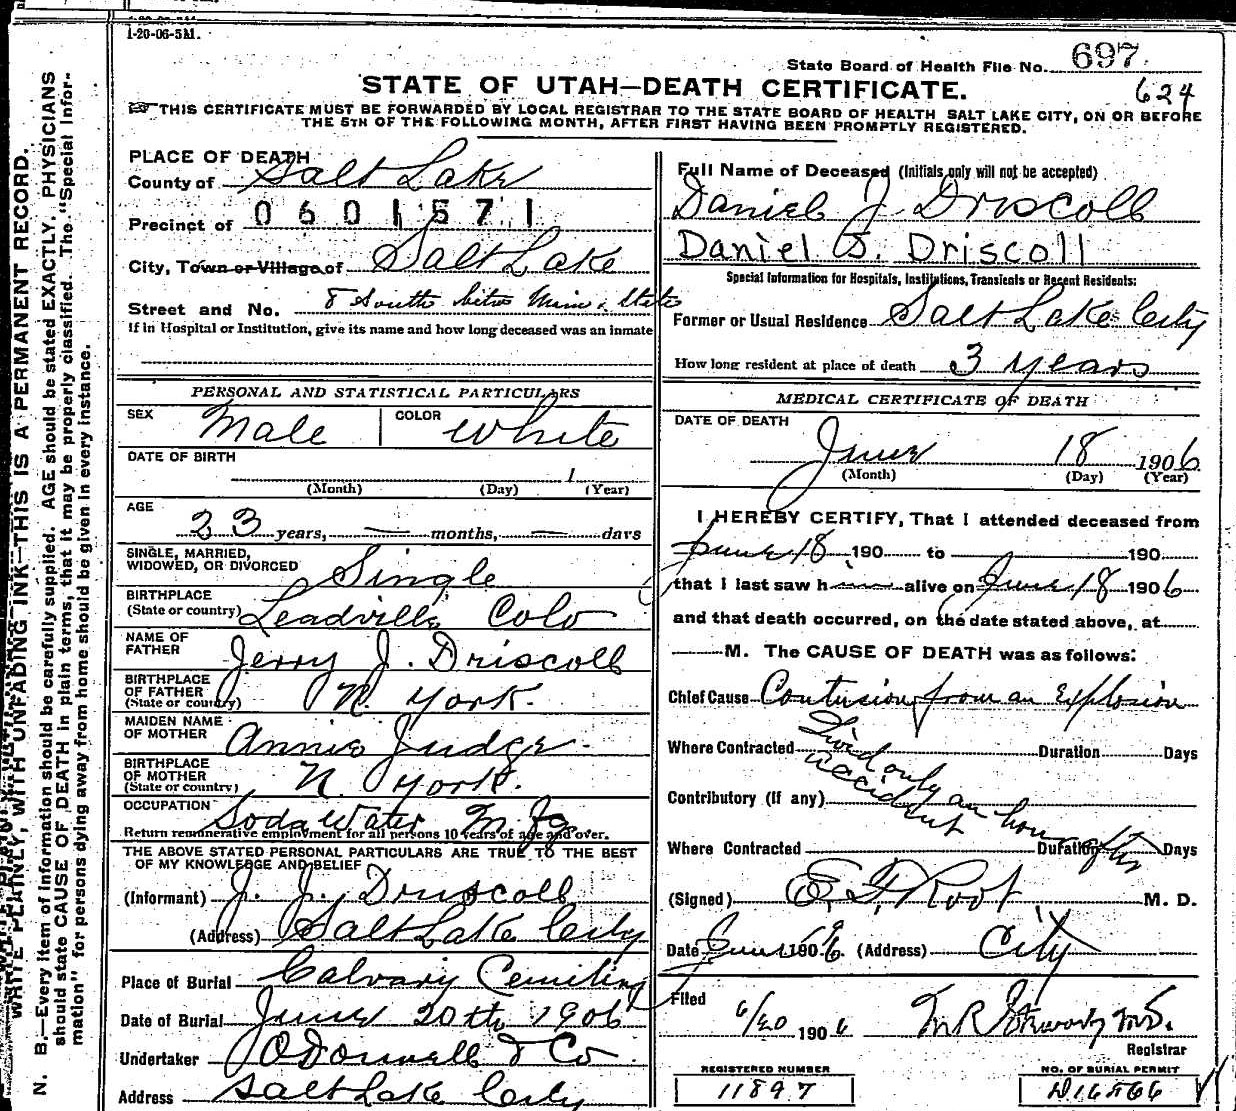 1-20-06-5M.
State Board of Health File No. 697
624
STATE OF UTAH—DEATH CERTIFICATE.
THIS CERTIFICATE MUST BE FORWARDED BY LOCAL REGISTRAR TO THE STATE BOARD OF HEALTH SALT LAKE CITY, ON OR BEFORE
THE 5TH OF THE FOLLOWING MONTH, AFTER FIRST HAVING BEEN PROMPTLY REGISTERED.
WRITE PLAINLY, WITH UNFADING INK—THIS IS A PERMANENT RECORD.
N. B.—Every item of information should be carefully supplied. AGE should be stated EXACTLY, PHYSICIANS
should state CAUSE OF DEATH in plain terms, that it may be properly classified. The "Special Infor-
mation" for persons dying away from home should be given in every instance.
PLACE OF DEATH
County of Salt Lake
Precinct of 0601571
City, Town or Village of Salt Lake
Street and No. 8 South betw Main & State
If in Hospital or Institution, give its name and how long deceased was an inmate
PERSONAL AND STATISTICAL PARTICULARS
SEX Male COLOR White
DATE OF BIRTH
1
(Month) (Day) (Year)
AGE
23 years, — months, — days
SINGLE, MARRIED,
WIDOWED, OR DIVORCED Single
BIRTHPLACE
(State or country) Leadville Colo
NAME OF
FATHER Jerry J. Driscoll
BIRTHPLACE
OF FATHER
(State or country) N. York.
MAIDEN NAME
OF MOTHER Annie Judge.
BIRTHPLACE
OF MOTHER
(State or country) N. York.
OCCUPATION Soda Water Mfg
Return remunerative employment for all persons 10 years of age and over.
THE ABOVE STATED PERSONAL PARTICULARS ARE TRUE TO THE BEST
OF MY KNOWLEDGE AND BELIEF
(Informant) J. J. Driscoll
(Address) Salt Lake City
Place of Burial Calvary Cemetery
Date of Burial June 20th 1906
Undertaker O'Donnell & Co
Address Salt Lake City
Full Name of Deceased (Initials only will not be accepted)
Daniel J Driscoll
Daniel J. Driscoll
Special Information for Hospitals, Institutions, Transients or Recent Residents:
Former or Usual Residence Salt Lake City
How long resident at place of death 3 years
MEDICAL CERTIFICATE OF DEATH
DATE OF DEATH
June 18 1906
(Month) (Day) (Year)
I HEREBY CERTIFY, That I attended deceased from
June 18 190 to 190
that I last saw him alive on June 18 1906
and that death occurred, on the date stated above, at
M. The CAUSE OF DEATH was as follows:
Chief Cause Contusion from an Explosion
Where Contracted Duration Days
Lived only an hour after
accident
Contributory (if any)
Where Contracted Duration Days
(Signed) E. F. Root M. D.
Date June 19 1906. (Address) City
Filed 6/20 1906 M.D.
Registrar
REGISTERED NUMBER
11897
NO. OF BURIAL PERMIT